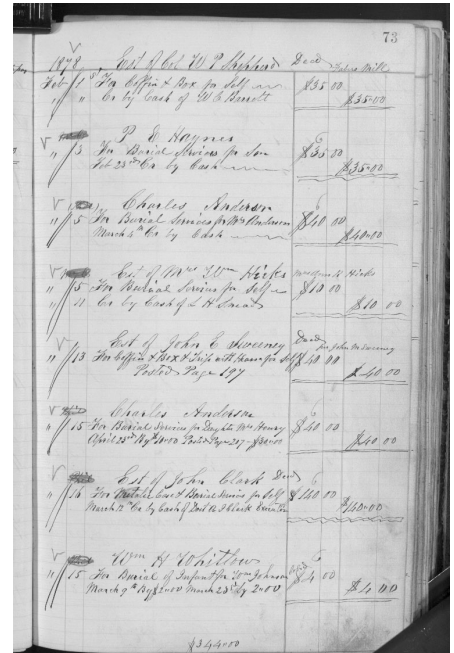 73
1878 Est of Col W P Shepherd Dead
Feb 1st For Coffin & Box for Self $35 00
" " Cr by Cash of W C Barrett $35=00
P E Haynes 6
" 3 For Burial Services for Son $35 00
Feb 23d Cr by Cash $35=00
Charles Anderson 6
" 5 For Burial Services for Mrs Anderson $40 00
March 4th Cr by Cash $40=00
Est of Mrs Wm Hicks Hicks
" 5 For Burial Services for Self $10 00
" 11 Cr by Cash of L H $10 00
Est of John E Sweeney Dead
for John Sweeney
" 13 For Coffin & Box & Trip with hearse for Self $40 00
Posted Page 197 $40 00
Charles Anderson 6
" 15 For Burial Services for Daughter Mrs Henry $40 00
April 23d By $10=00 Posted Page 217 - $30=00 $40 00
Est of John Clark Dead 6
" 16 For Metalic Case & Burial Services for Self $140 00
March 12th Cr by Cash of J Clark Executor $140=00
Wm H Whitlow 6
" 15 For Burial of Infant for Johnson $4 00
March 9th By $2=00 March 23d by 2=00 $4 00
$344=00